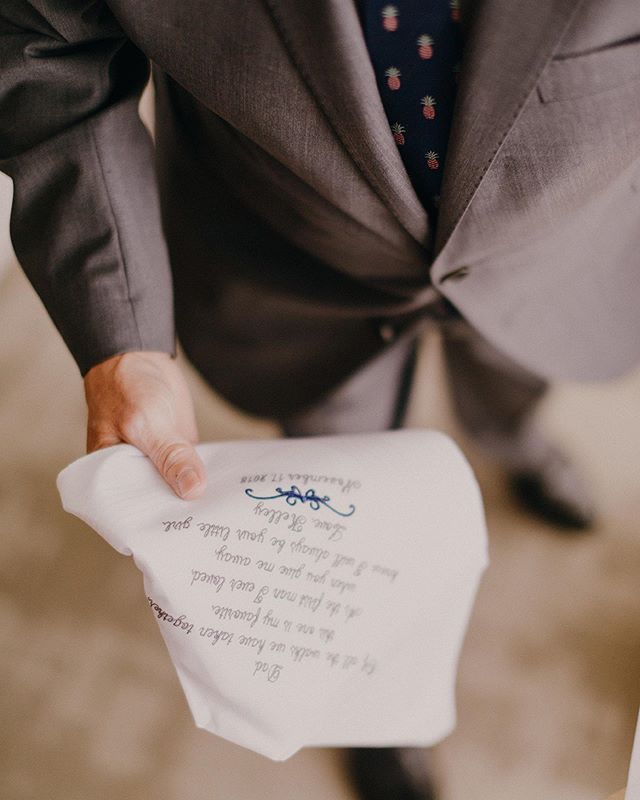 Dad,
Of all the walks we have taken together,
this one is my favorite.
As the first man I ever loved,
when you give me away
know I will always be your little girl.
Love, Kelley
November 17, 2018